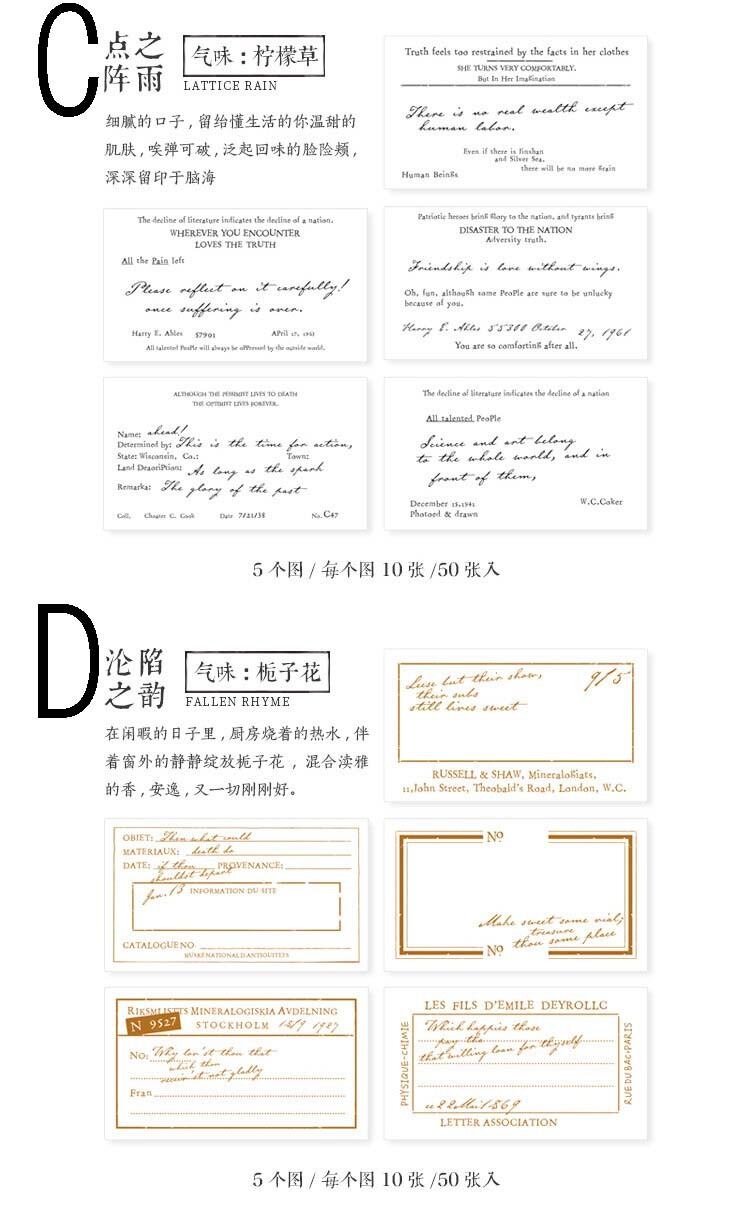 C
点之
阵雨
气味：柠檬草
LATTICE RAIN
细腻的口子，留给懂生活的你温甜的
肌肤，唉弹可破，泛起回味的脸险颊，
深深留印于脑海
Truth feels too restrained by the facts in her clothes
SHE TURNS VERY COMFORTABLY.
But In Her Imagination
There is no real wealth except
human labor.
Even if there is Jinshan
and Silver Sea,
there will be no more grain
Human Beings
The decline of literature indicates the decline of a nation.
WHEREVER YOU ENCOUNTER
LOVES THE TRUTH
All the Pain left
Please reflect on it carefully!
once suffering is over.
Harry E. Ables 57901 APril 17, 1961
All talented PeoPle will always be oPPressed by the outside world.
Patriotic heroes bring glory to the nation, and tyrants bring
DISASTER TO THE NATION
Adversity truth.
Friendship is love without wings.
Oh, fun, although some PeoPle are sure to be unlucky
because of you.
Harry E. Ables 55300 October 27, 1961
You are so comforting after all.
ALTHOUGH THE PESSIMIST LIVES TO DEATH
THE OPTIMIST LIVES FOREVER.
Name: ahead!
Determined by: This is the time for action,
State: Wisconsin, Co.: Town:
Land DeacriPtion: As long as the spark
Remarks: The glory of the past
Coll. Chester C. Cook Date 7/21/38 No. C47
The decline of literature indicates the decline of a nation
All talented PeoPle
Science and art belong
to the whole world, and in
front of them,
December 15,1941
Photoed & drawn
W.C.Coker
5个图/每个图10张/50张入
D
沦陷
之韵
气味：栀子花
FALLEN RHYME
在闲暇的日子里，厨房烧着的热水，伴
着窗外的静静绽放栀子花，混合渎雅
的香，安逸，又一切刚刚好。
Leese but their show,
their subs
still lives sweet
9/5
RUSSELL & SHAW, Mineralogiats,
11,John Street, Theobald's Road, London, W.C.
OBJET: Then what could
MATERIAUX: death do
DATE: if thou PROVENANCE:
shouldst depart
Jan. 13 INFORMATION DU SITE
CATALOGUE NO
MUSRÉ NATIONAL D'ANTIQUITÉES
No
Make sweet some vial;
treasure
thou some place
No
RIKSMUSETTS MINERALOGISKIA AVDELNING
N 9527 STOCKHOLM 15/9 1927
NO: Why lov'st thou that
which thou
receiv'st not gladly
Fran
LES FILS D'EMILE DEYROLLC
PHYSIQUE-CHIMIE
Which happies those
pay the
that willing loan for thyself
22 Mai 1869
RUE DU BAC-PARIS
LETTER ASSOCIATION
5个图/每个图10张/50张入